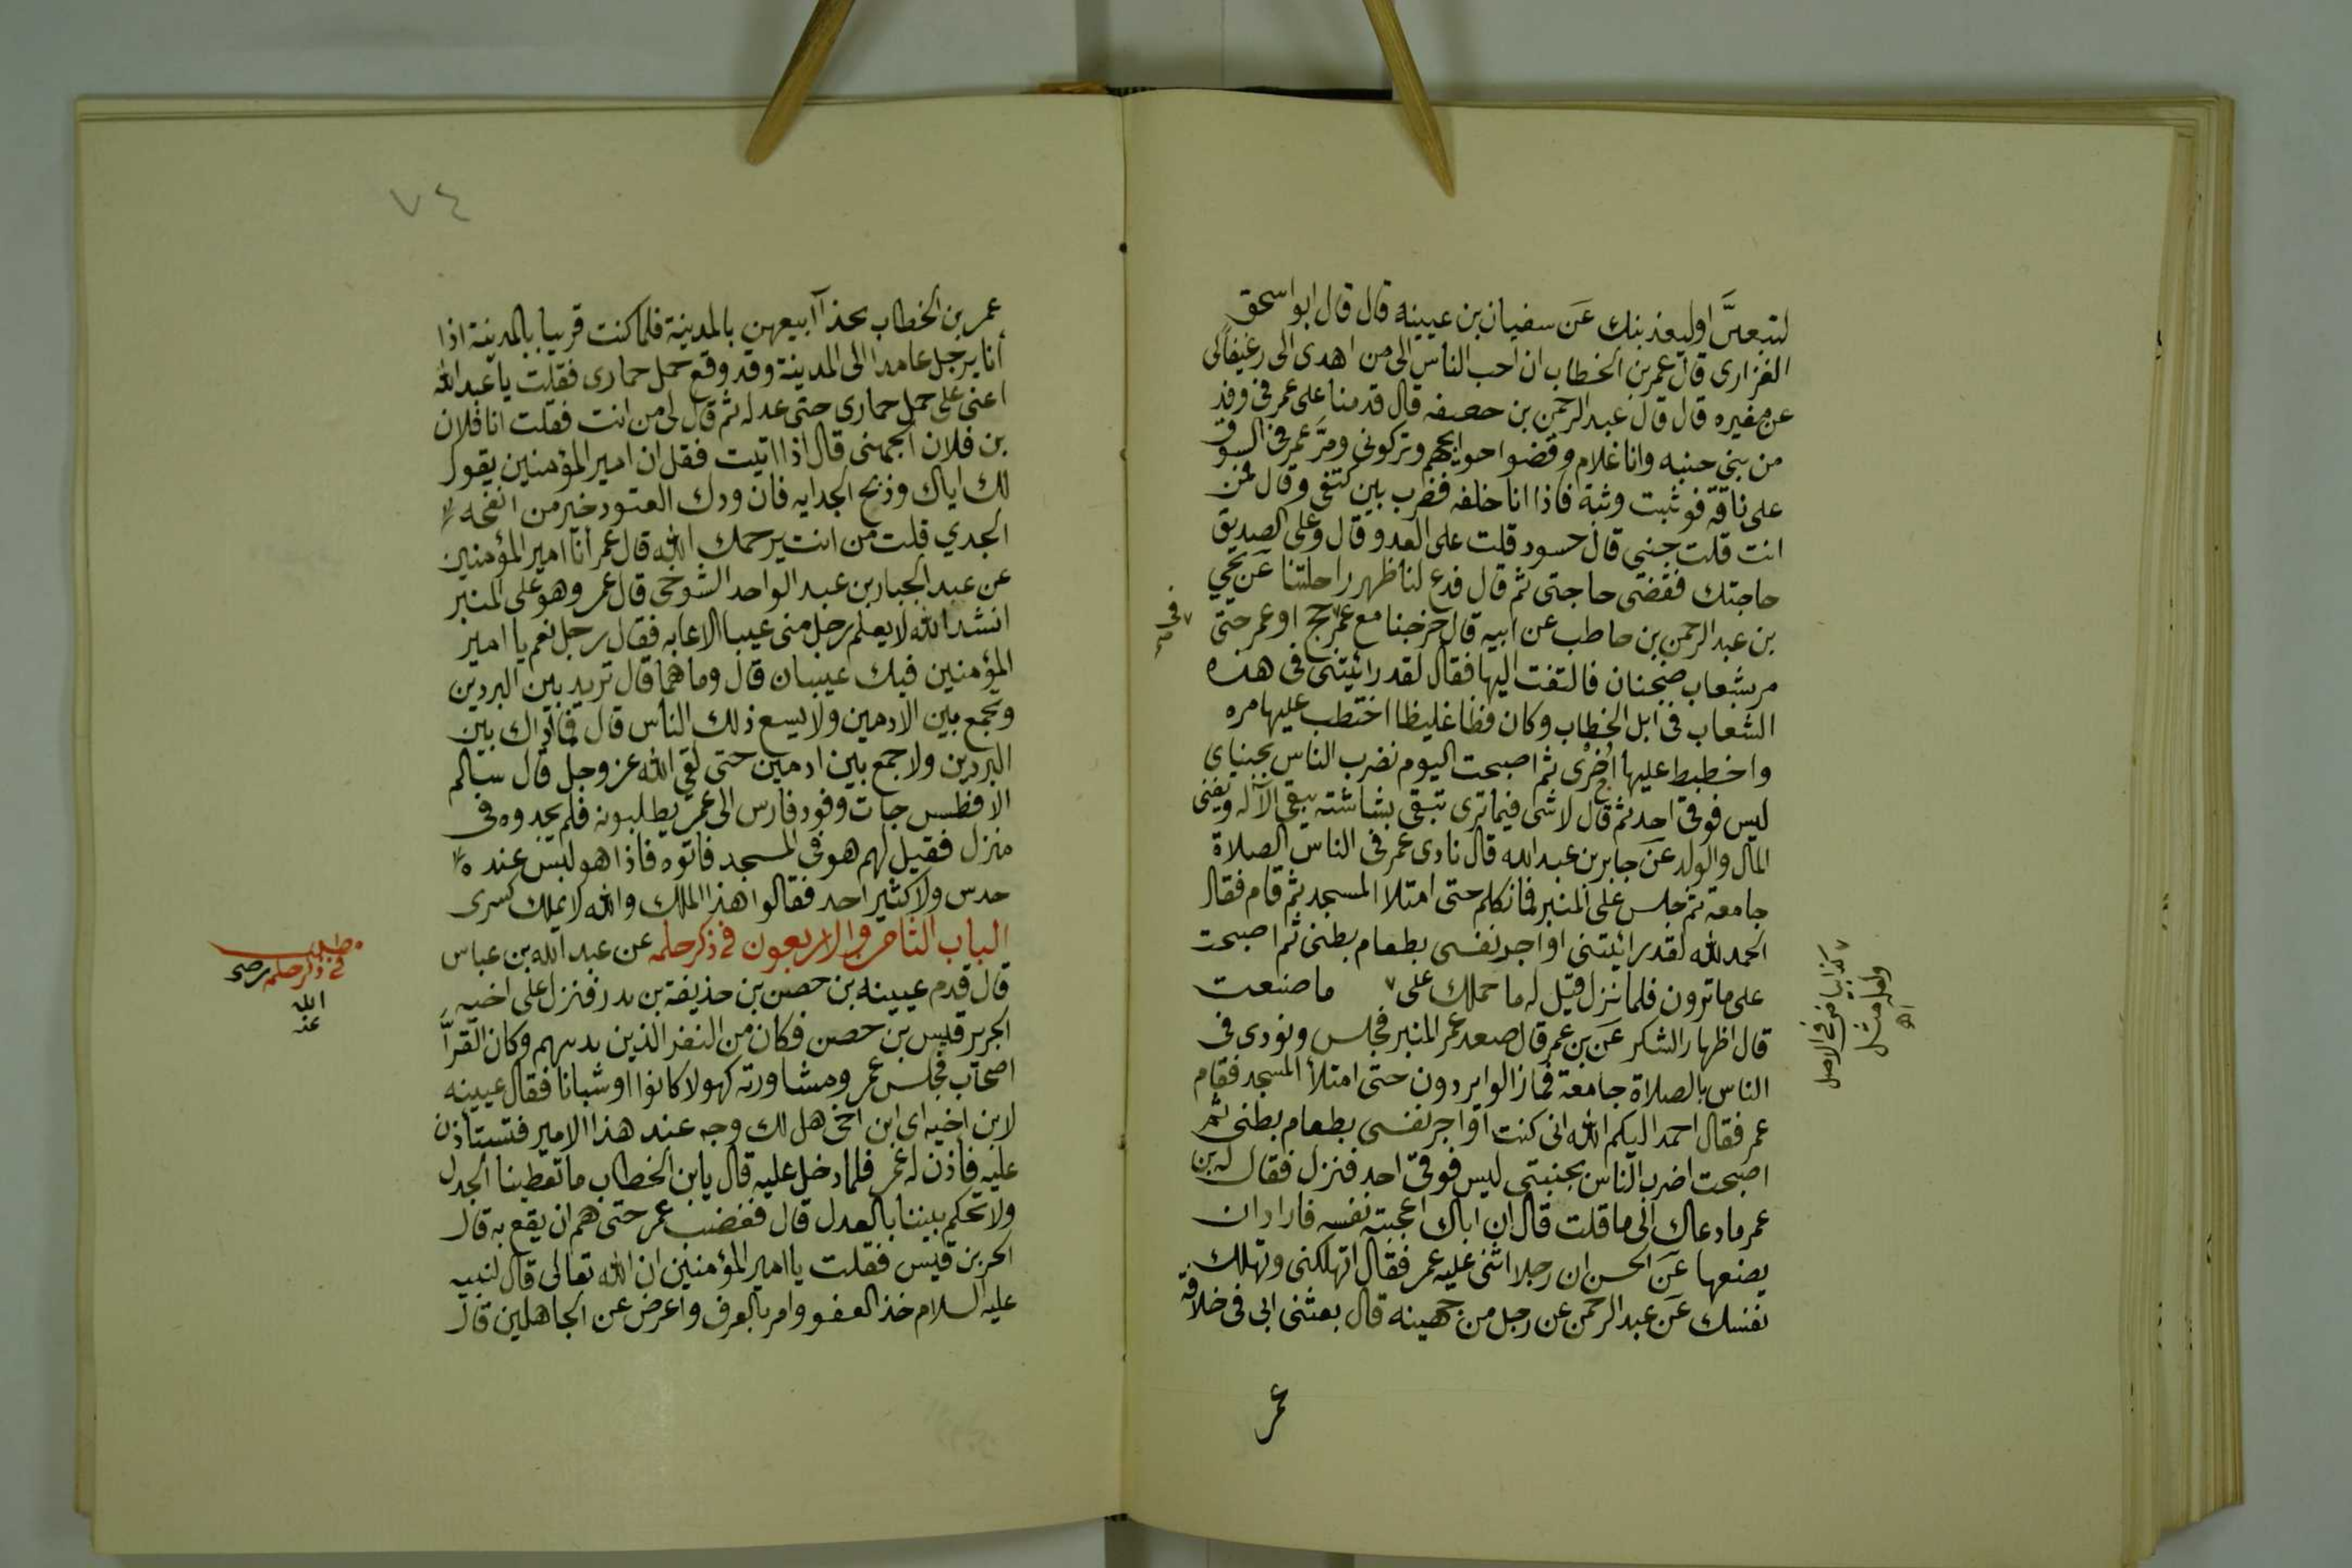 لتتبعنَّ اوليعذبنك عَن سفيان بن عيينه قال قال ابو اسحق
الفزارى قال عمر بن الخطاب ان احب الناس الى من اهدى الى رغيفا لى
عن مغيره قال قال عبد الرحمن بن حصفه قال قدمنا على عمر فى وفد
من بنى حنبه وانا غلام وقضوا حوايجهم وتركونى ومرَّ عمر فى السوق
على ناقة فوثبت وثبة فاذا انا خلفه فضرب بين كتفى وقال ممن
انت قلت جنبى قال حسود قلت على العدو قال وعلى الصديق
حاجتك فقضى حاجتى ثم قال فدع لنا ظهر راحلتنا عَن يحيى
بن عبد الرحمن بن حاطب عن ابيه قال خرجنا مع عمر٧ حج او عمر حتى
٧ فى صح
مر بشعاب ضجنان فالتفت اليها فقال لقد رائيتنى فى هذه
الشعاب فى ابل الخطاب وكان فظا غليظا احتطب عليها مره
واخطبط عليها اُخرى ثم اصبحت اليوم نضرب الناس بجنباى
ليس فوقى احد ثم قال لا شى فيما ترى تبقى بشاشته يبقى الآله ويفنى
المال والولد عَن جابر بن عبد الله قال نادى عمر فى الناس الصلاة
جامعة ثم جلس على المنبر فما تكلم حتى امتلا المسجد ثم قام فقال
الحمد لله لقد رائيتنى اواجر نفسى بطعام بطنى ثم اصبحت
على ماترون فلما نزل قيل له ما حملك على ٧ ما صنعت
٧ كذا بياض فى الاصل
ولعله مثل
اه
قال اظهار الشكر عَن بن عمر قال صعد عمر المنبر فجلس ونودى فى
الناس بالصلاة جامعة فما زالوا يردون حتى امتلأ المسجد فقام
عمر فقال احمد اليكم الله انى كنت اواجر نفسى بطعام بطنى ثم
اصبحت اضرب الناس بجنبتى ليس فوقى احد فنزل فقال له بن
عمر ما دعاك الى ما قلت قال ان اباك اعجبته نفسه فاراد ان
يضعها عَن الحسن ان رجلا اثنى عليه عمر فقال اتهلكنى وتهلك
نفسك عَن عبد الرحمن عن رجل من جهينه قال بعثنى ابى فى خلافة
عمر
٧٤
عمر بن الخطاب بحذاآ ابيعهن بالمدينة فلما كنت قريبا بالمدينة اذا
انا برجل عامدا الى المدينة وقد وقع حمل حمارى فقلت يا عبد الله
اعنى على حمل حمارى حتى عدله ثم قال لى من انت فقلت انا فلان
بن فلان الجهنى قال اذا اتيت فقل ان امير المؤمنين يقول
لك اياك وذبح الجدايه فان ودك العتود خير من انفحه
الجدي قلت من انت يرحمك الله قال عمر أنا امير المؤمنين
عن عبد الجبار بن عبد الواحد الشوخى قال عمر وهو على المنبر
انشد الله لا يعلم رجل منى عيبا الا عابه فقال رجل نعم يا امير
المؤمنين فيك عيبان قال وما هما قال تريد بين البردين
وتجمع بين الادمين ولا يسع ذلك الناس قال فما اراك بين
البردين ولا جمع بين ادمين حتى لقى الله عز وجل قال سالم
الافطس جات وفود فارس الى عمر يطلبونه فلم يجدوه فى
منزل فقيل لهم هو فى المسجد فاتوه فاذا هو ليس عنده
حدس ولا كثير احد فقالوا هذا الملك والله لا بملك كسرى
الباب الثامن والاربعون فى ذكر حلمه عن عبد الله بن عباس
مطلب
فى ذكر حلمه رضى
الله
عنه
قال قدم عيينه بن حصن بن حذيفة بن بدر فنزل على اخيه
الحربر قيس بن حصن فكان من النفر الذين يدنيهم وكان القرآ
اصحاب مجلس عمر ومشاورته كهولا كانوا او شبانا فقال عيينه
لابن اخيه اى ابن اخى هل لك وجه عند هذا الامير فتستأذن
عليه فاذن له عمر فلما دخل عليه قال يابن الخطاب ما تعطينا الجدل
ولا تحكم بيننا بالعدل قال فغضب عمر حتى هم ان يقع به قال
الحر بن قيس فقلت يا امير المؤمنين ان الله تعالى قال لنبيه
عليه السلام خذ العفو وامر بالعرف واعرض عن الجاهلين قال